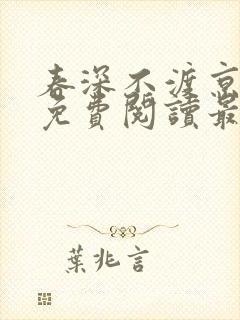 春深不渡京
免費閱讀最
葉兆言